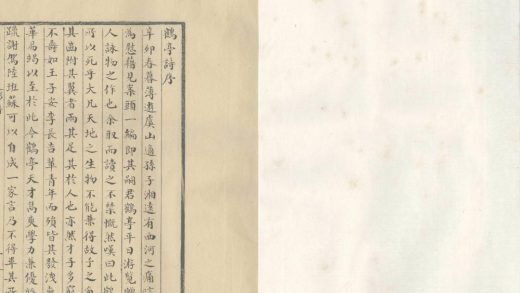 鶴亭詩序
辛卯春暮薄遊虞山適孫子湘遠有西河之痛
為慰藉見案頭一編即其嗣君鶴亭平日游覽
人詠物之作也余取而讀之不禁慨然嘆曰此鶴
可以死乎大凡天地之生物不能兼得故予之角
其齒附其翼者兩其足其於人也亦然才子多窮
不壽如王子安李長吉輩青年而殞皆其發洩
華為蝎以至於此今鶴亭天才高爽學力兼優
疏謝駕陸班蘇可以自成一家言乃不得畢其